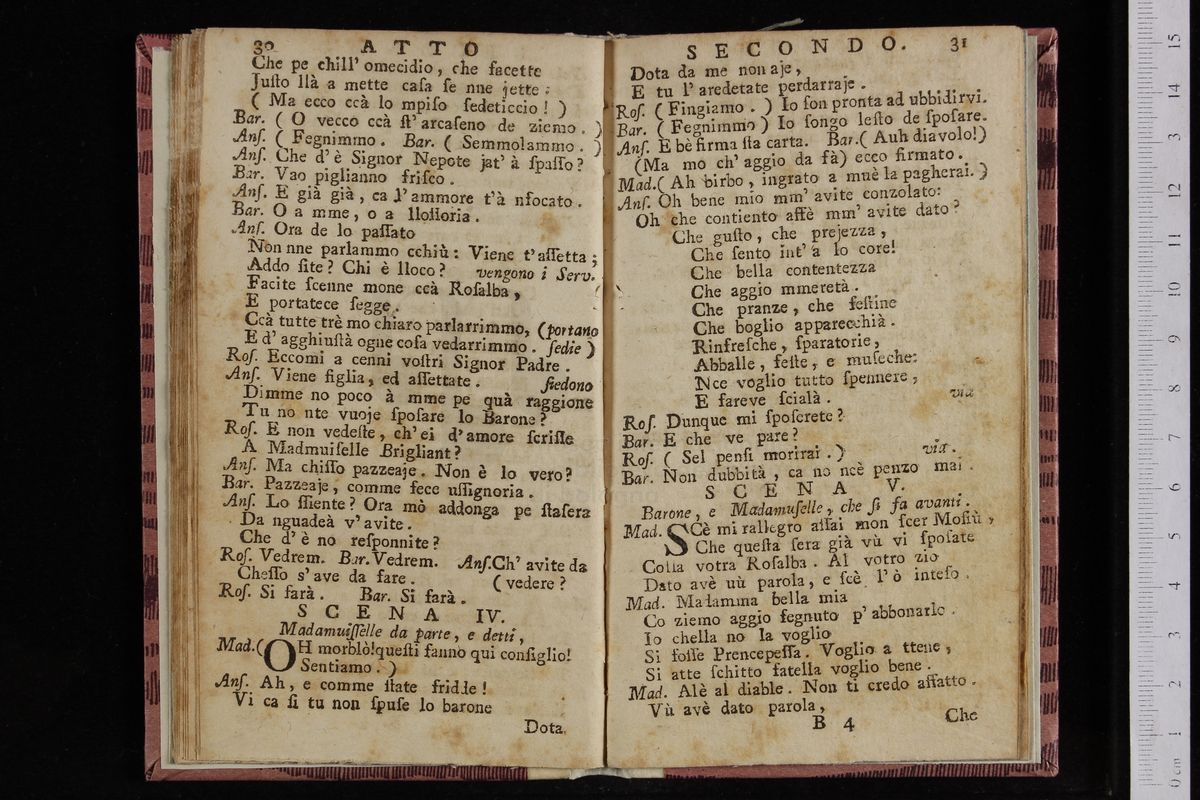 30 ATTO
Che pe chill' omecidio, che facette
Juſto llà a mette caſa ſe nne jette:
( Ma ecco ccà lo mpiſo ſedeticcio! )
Bar. ( O vecco ccà ſt' arcaſeno de ziemo. )
Anſ. ( Fegnimmo. Bar. ( Semmolammo. )
Anſ. Che d' è Signor Nepote jat' à ſpaſſo?
Bar. Vao piglianno friſco.
Anſ. E già già, ca l' ammore t'à nfocato.
Bar. O a mme, o a lloſſoria.
Anſ. Ora de lo paſſato
Non nne parlammo cchiù: Viene t'aſſetta;
Addo ſite? Chi è lloco? vengono i Serv.
Facite ſcenne mone ccà Roſalba,
E portatece ſegge.
Ccà tutte trè mo chiaro parlarrimmo, (portano
E d' agghiuſtà ogne coſa vedarrimmo. ſedie )
Roſ. Eccomi a cenni voſtri Signor Padre.
Anſ. Viene figlia, ed aſſettate. ſiedono
Dimme no poco à mme pe quà raggione
Tu no nte vuoje ſpoſare lo Barone?
Roſ. E non vedeſte, ch' ei d' amore ſcriſſe
A Madmuiſelle Brigliant?
Anſ. Ma chiſſo pazzeaje. Non è lo vero?
Bar. Pazzeaje, comme fece uſſignoria.
Anſ. Lo ſſiente? Ora mò addonga pe ſtaſera
Da nguadeà v' avite.
Che d' è no reſponnite?
Roſ. Vedrem. Bar. Vedrem. Anſ. Ch' avite da
Cheſſo s' ave da fare. ( vedere?
Roſ. Si farà. Bar. Si farà.
SCENA IV.
Madamuiſſelle da parte, e detti,
Mad. ( OH morblò! queſti fanno qui conſiglio!
Sentiamo. )
Anſ. Ah, e comme ſtate fridde!
Vi ca ſi tu non ſpuſe lo barone
Dota
SECONDO. 31
Dota da me non aje,
E tu l' aredetate perdarraje.
Roſ. ( Fingiamo. ) Io ſon pronta ad ubbidirvi.
Bar. ( Fegnimmo ) Io ſongo leſto de ſpoſare.
Anſ. E bè firma ſta carta. Bar. ( Auh diavolo! )
(Ma mo ch' aggio da fà) ecco firmato.
Mad. ( Ah birbo, ingrato a muè la pagherai. )
Anſ. Oh bene mio mm' avite conzolato:
Oh che contiento affè mm' avite dato?
Che guſto, che prejezza,
Che ſento int' a lo core!
Che bella contentezza
Che aggio mmeretà.
Che pranze, che feſtine
Che boglio apparecchià.
Rinfreſche, ſparatorie,
Abballe, feſte, e muſeche:
Nce voglio tutto ſpennere,
E fareve ſcialà. via
Roſ. Dunque mi ſpoſerete?
Bar. E che ve pare?
Roſ. ( Sel penſi morirai. ) via.
Bar. Non dubbità, ca no ncè penzo mai.
SCENA V.
Barone, e Madamuſelle, che ſi fa avanti.
Mad. SCè mi rallegro aſſai mon ſcer Moſiù,
Che queſta ſera già vù vi ſpoſate
Colla votra Roſalba. Al votro zio
Dato avè uù parola, e ſcè l' ò inteſo.
Mad. Madamma bella mia
Co ziemo aggio fegnuto p' abbonarlo.
Io chella no la voglio
Si foſſe Prencepeſſa. Voglio a ttene,
Si atte ſchitto fatella voglio bene.
Mad. Alè al diable. Non ti credo affatto.
Vù avè dato parola,
B 4 Che